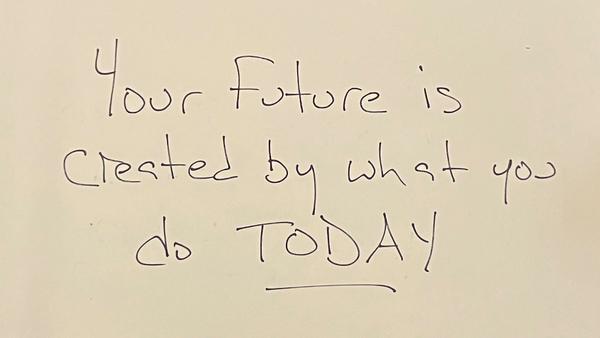 Your Future is
created by what you
do TODAY